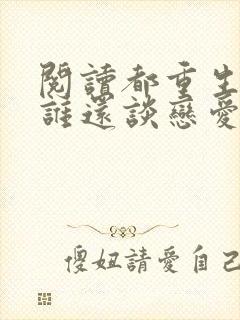 閱讀都重生
誰還談戀愛
傻妞請愛自己